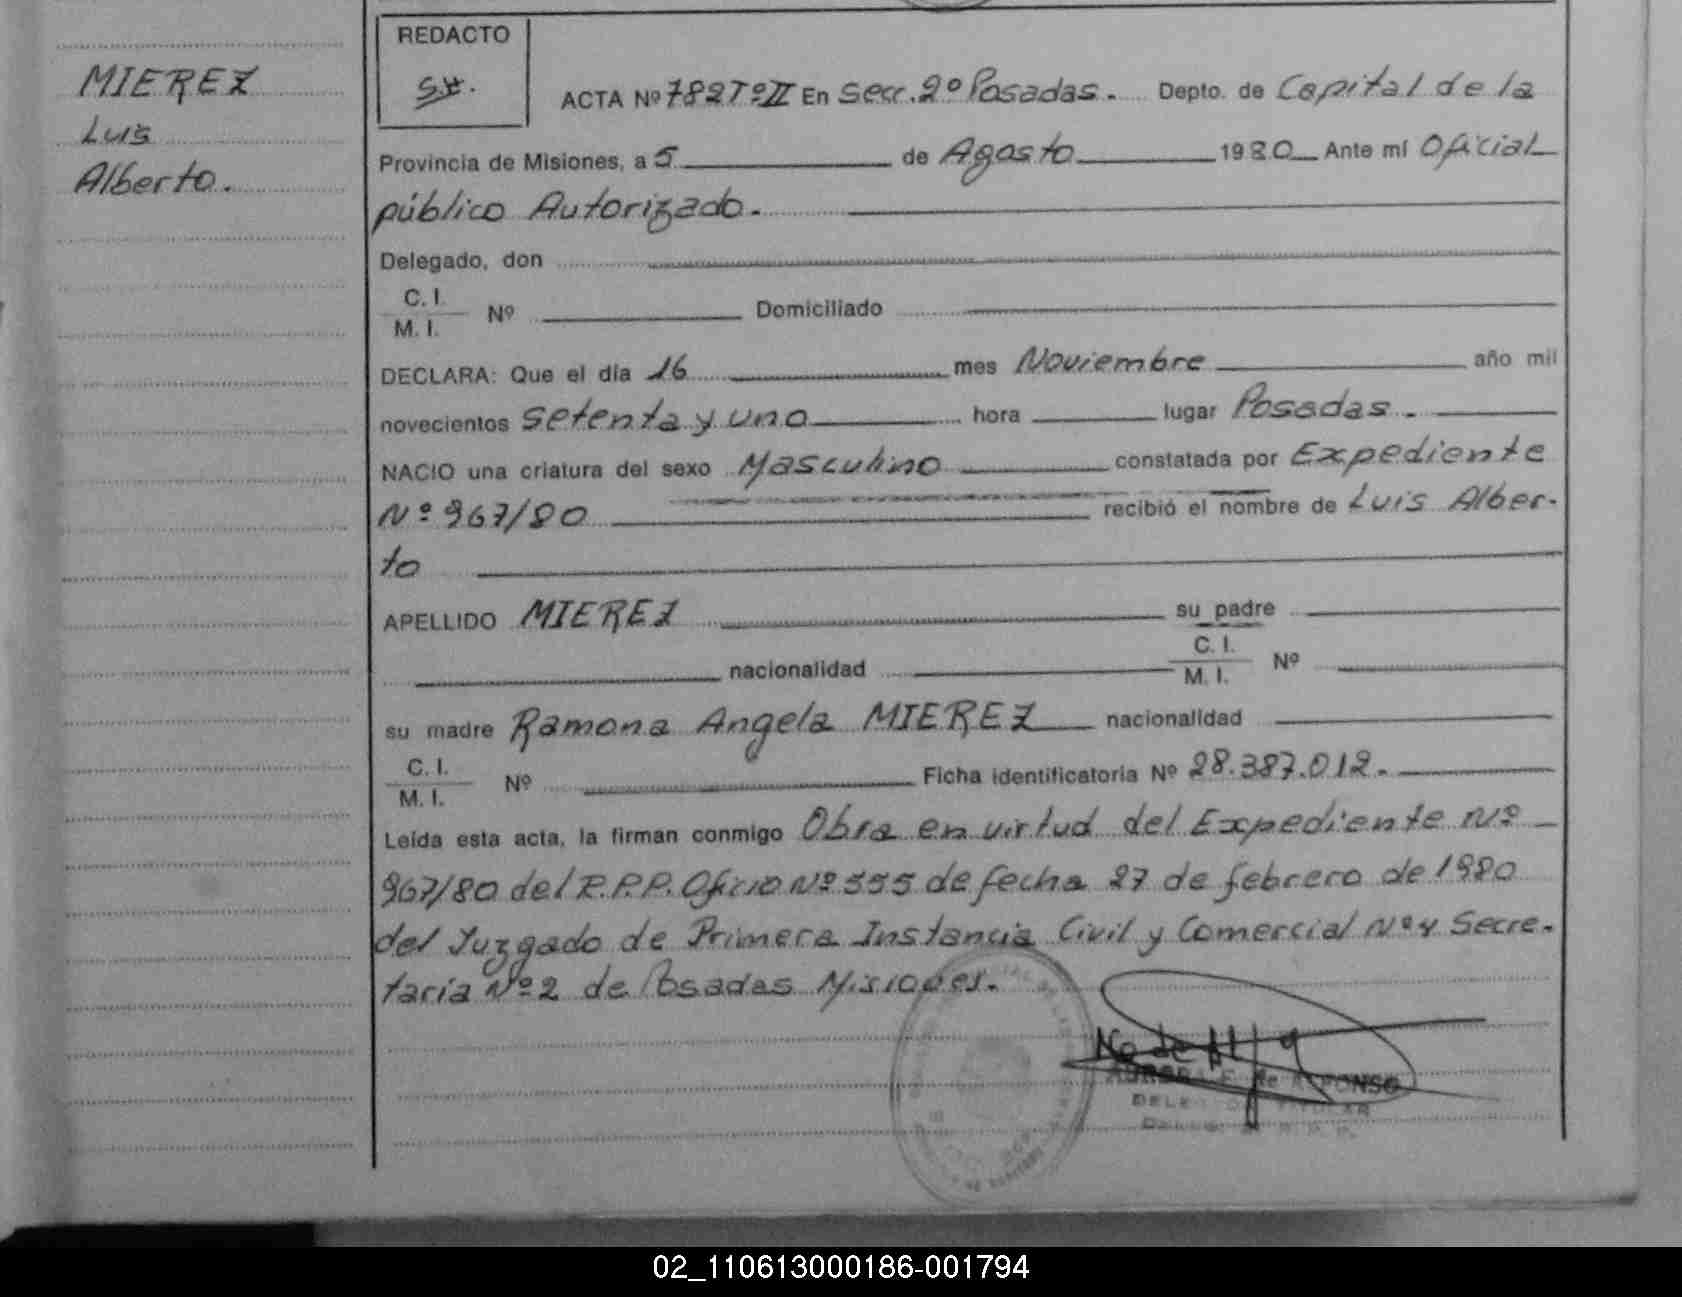 MIEREZ
Luis
Alberto.
REDACTO
ACTA Nº 782 Tº II En Secc. 2º Posadas. Depto. de Capital de la
Provincia de Misiones, a 5 de Agosto 1980 Ante mí Oficial
público Autorizado.
Delegado, don
C. I.
M. I. Nº Domiciliado
DECLARA: Que el día 16 mes Noviembre año mil
novecientos setenta y uno hora lugar Posadas.
NACIO una criatura del sexo Masculino constatada por Expediente
Nº 967/80 recibió el nombre de Luis Alber-
to
APELLIDO MIEREZ su padre
nacionalidad C. I.
M. I. Nº
su madre Ramona Angela MIEREZ nacionalidad
C. I.
M. I. Nº Ficha identificatoria Nº 28.387.012.
Leída esta acta, la firman conmigo Obra en virtud del Expediente Nº
967/80 del R.P.P. Oficio Nº 555 de fecha 27 de febrero de 1980
del Juzgado de Primera Instancia Civil y Comercial Nº 4 Secre-
taría Nº 2 de Posadas Misiones.
AURORA F. de ALFONSO
DELEGADA TITULAR
02_110613000186-001794